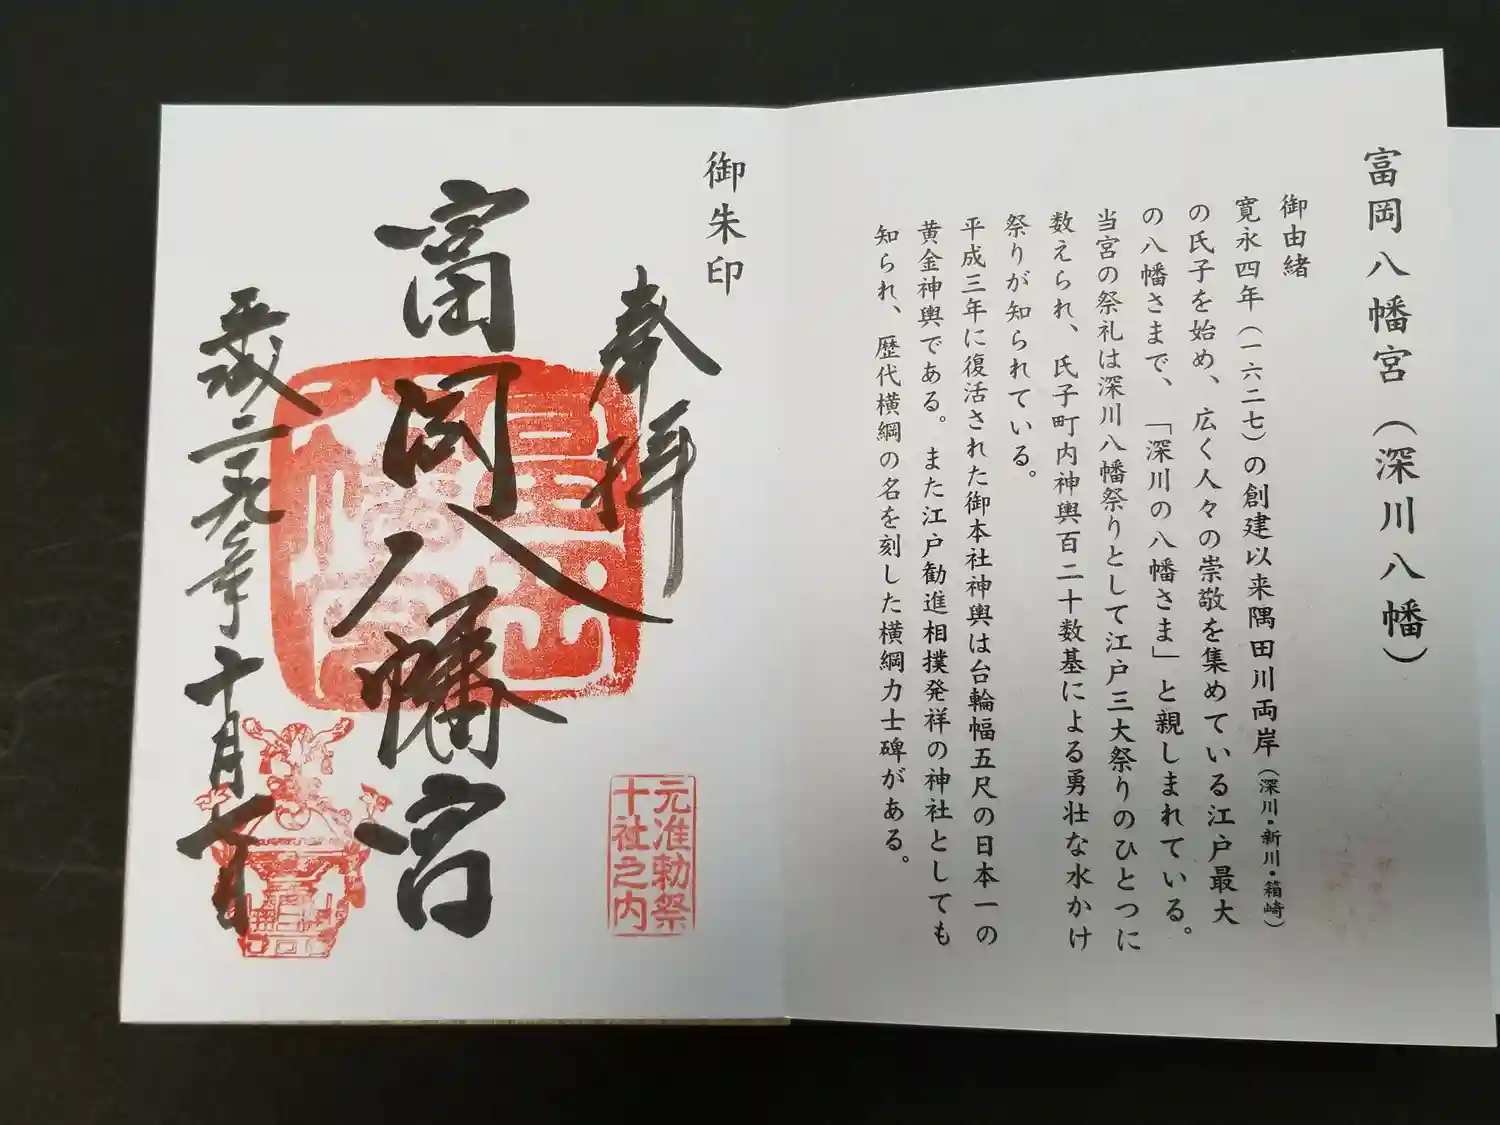 富岡八幡宮（深川八幡）
御由緒
寛永四年（一六二七）の創建以来隅田川両岸（深川・新川・箱崎）
の氏子を始め、広く人々の崇敬を集めている江戸最大
の八幡さまで、「深川の八幡さま」と親しまれている。
当宮の祭礼は深川八幡祭りとして江戸三大祭りのひとつに
数えられ、氏子町内神輿百二十数基による勇壮な水かけ
祭りが知られている。
平成三年に復活された御本社神輿は台輪幅五尺の日本一の
黄金神輿である。また江戸勧進相撲発祥の神社としても
知られ、歴代横綱の名を刻した横綱力士碑がある。
御朱印
奉拝
元准勅祭
十社之内
富岡八幡宮
富岡
八幡宮
平成二十九年十月